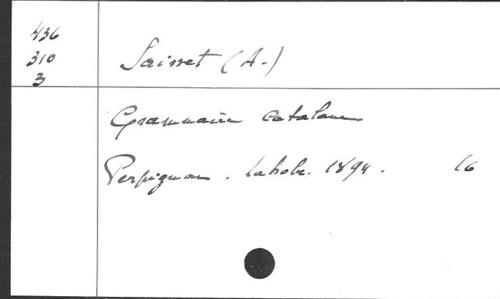 436
310
3
Saisset (A.)
Grammaire catalane
Perpignan. Latrobe. 1894. 16